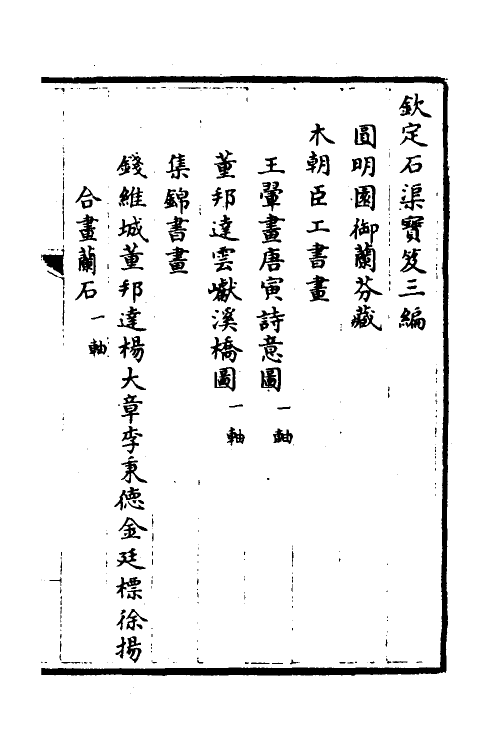 欽定石渠寶笈三編
圓明園御蘭芬藏
木朝臣工書畫
王翬畫唐寅詩意圖一軸
董邦達雲巘溪橋圖一軸
集錦書畫
錢維城董邦達楊大章李秉德金廷標徐揚
合畫蘭石一軸